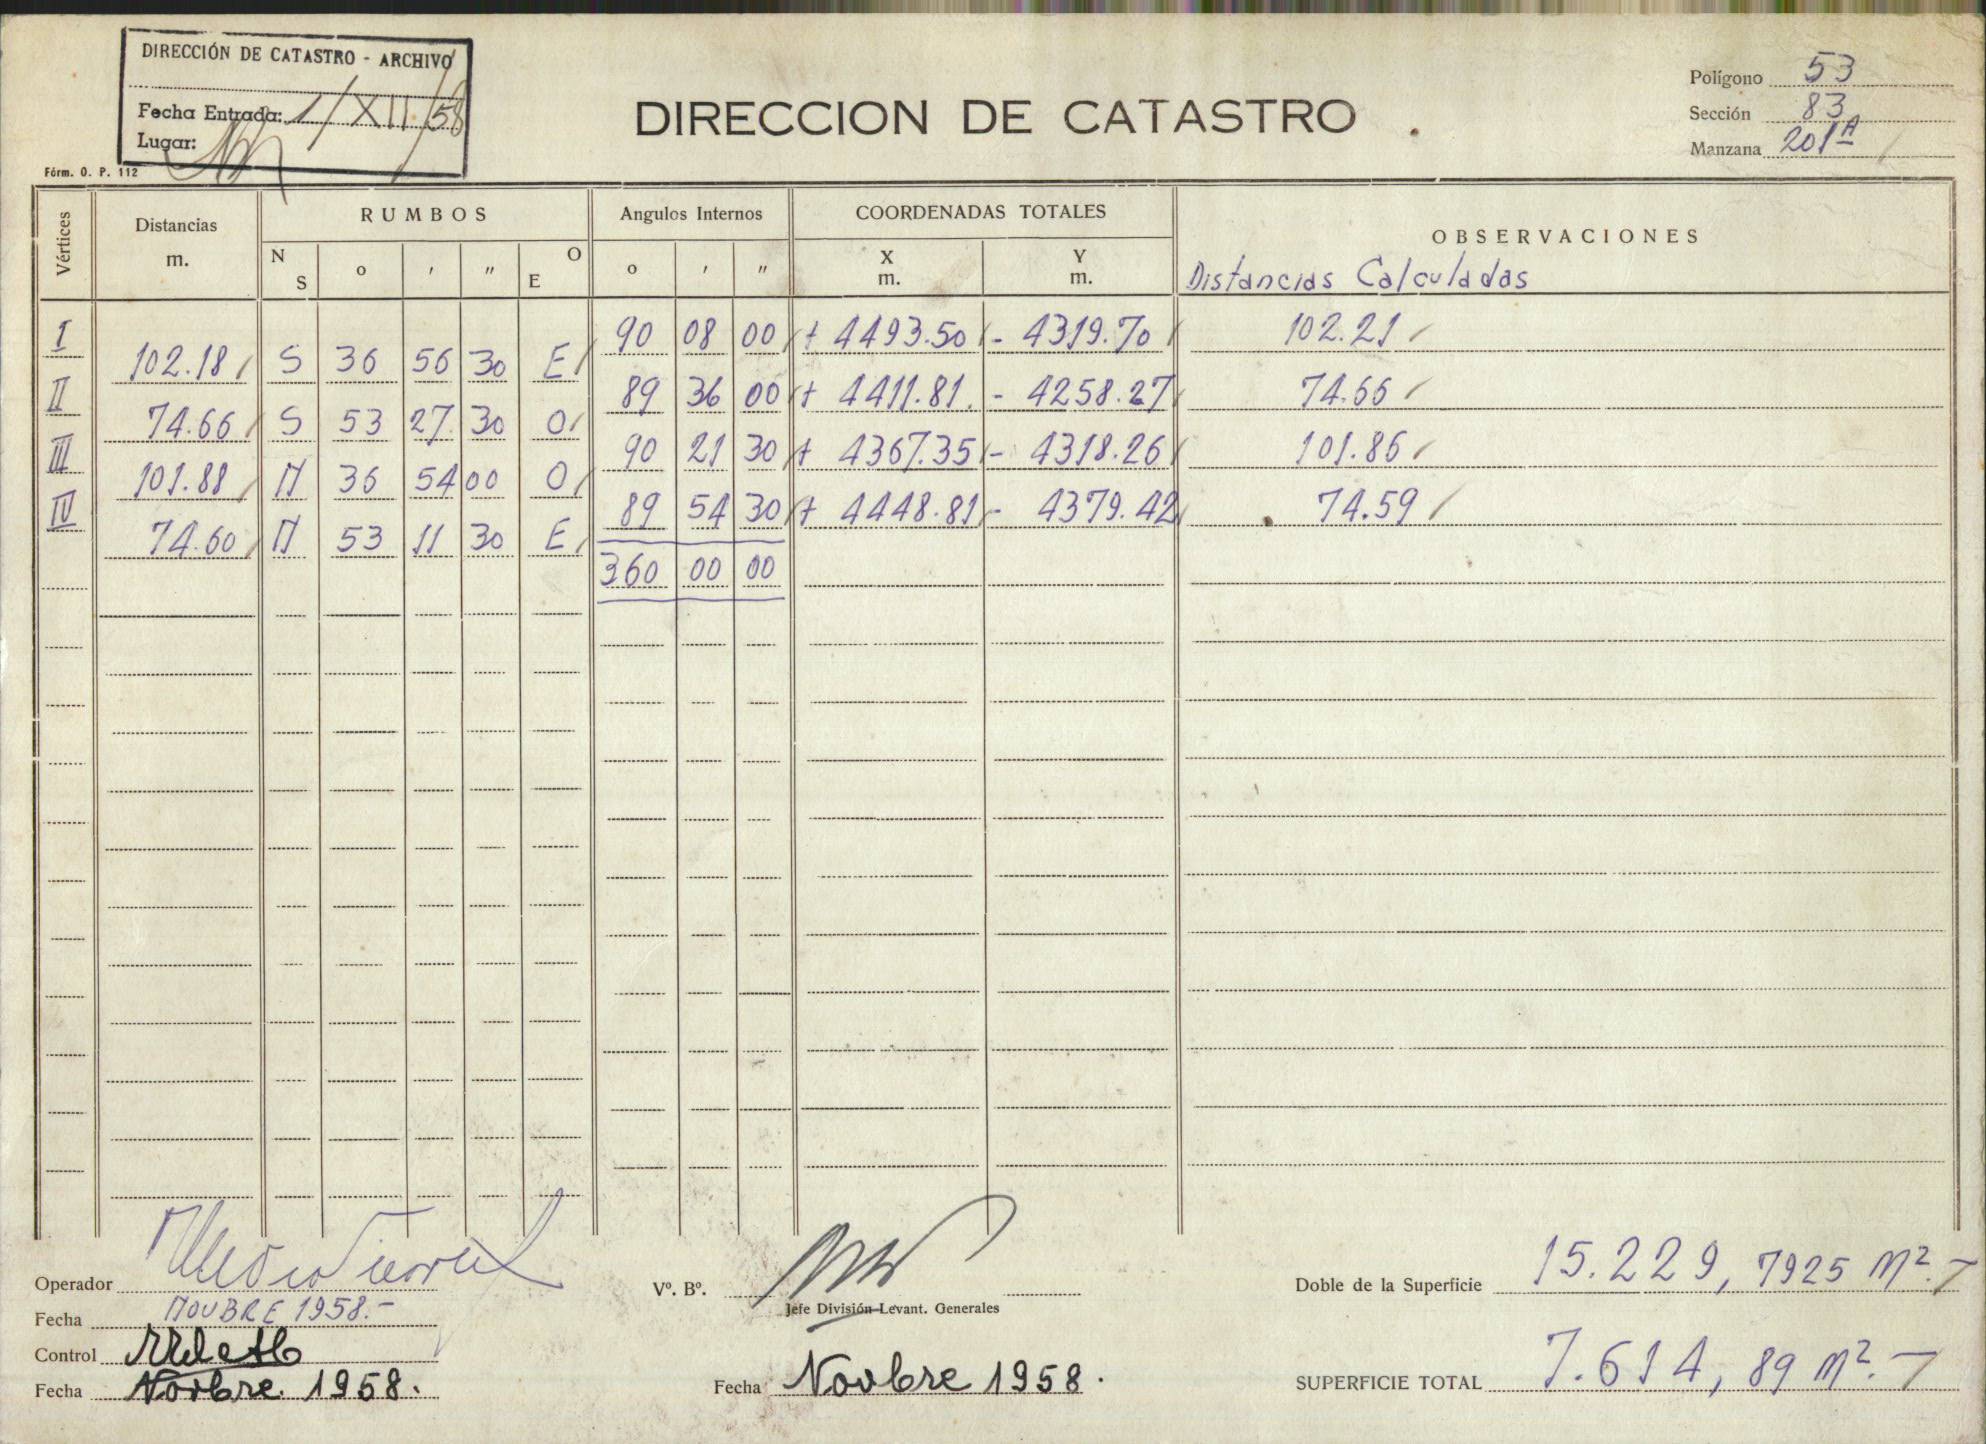 DIRECCIÓN DE CATASTRO - ARCHIVO
Fecha Entrada: 1/XII/58
Lugar:
Fórm. O. P. 112
DIRECCION DE CATASTRO
Polígono 53
Sección 83
Manzana 201A
Vértices Distancias m. RUMBOS Angulos Internos COORDENADAS TOTALES OBSERVACIONES
N S o ' " O E o ' " X m. Y m. Distancias Calculadas
I 90 08 00 + 4493.50 - 4319.70 102.21
102.18 S 36 56 30 E
II 89 36 00 + 4411.81 - 4258.27 74.66
74.66 S 53 27 30 O
III 90 21 30 + 4367.35 - 4318.26 101.86
101.88 N 36 54 00 O
IV 89 54 30 + 4448.81 - 4379.42 74.59
74.60 N 53 11 30 E
360 00 00
Operador
Fecha NOVBRE 1958.-
Control
Fecha Novbre. 1958.
Vº. Bº.
Jefe División Levant. Generales
Fecha Novbre 1958.
Doble de la Superficie 15.229,7925 M².-
SUPERFICIE TOTAL 7.614,89 M².-